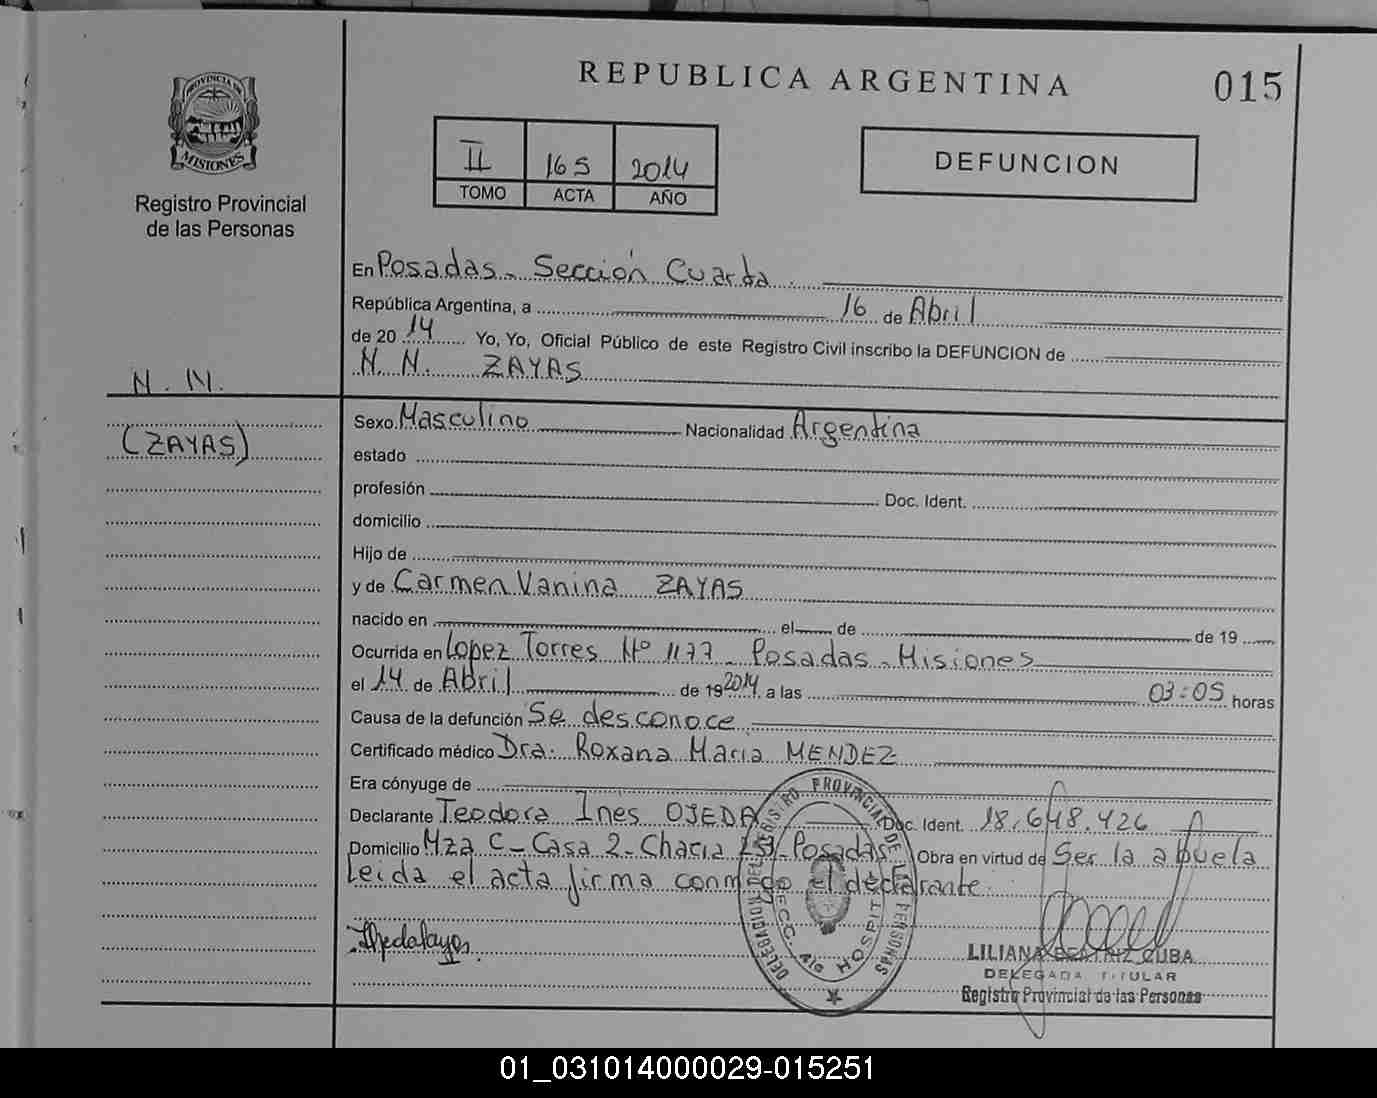 REPUBLICA ARGENTINA
015
PROVINCIA DE
MISIONES
Registro Provincial
de las Personas
II 165 2014
TOMO ACTA AÑO
DEFUNCION
En Posadas - Sección Cuarta
República Argentina, a 16 de Abril
de 2014 Yo, Yo, Oficial Público de este Registro Civil inscribo la DEFUNCION de
N. N. ZAYAS
N. N.
(ZAYAS)
Sexo Masculino Nacionalidad Argentina
estado
profesión Doc. Ident.
domicilio
Hijo de
y de Carmen Vanina ZAYAS
nacido en el de de 19
Ocurrida en Lopez Torres Nº 1177 - Posadas - Misiones
el 14 de Abril de 19 2014 a las 03:05 horas
Causa de la defunción Se desconoce
Certificado médico Dra. Roxana Maria MENDEZ
Era cónyuge de
Declarante Teodora Ines OJEDA Doc. Ident. 18.648.426
Domicilio Mza C - Casa 2 - Chacra Posadas Obra en virtud de Ser la abuela
Leida el acta firma conmigo el declarante.
DELEGACION DEL REGISTRO PROVINCIAL DE LAS PERSONAS
SECC. 4ta HOSPIT
LILIANA BEATRIZ CUBA
DELEGADA TITULAR
Registro Provincial de las Personas
01_031014000029-015251